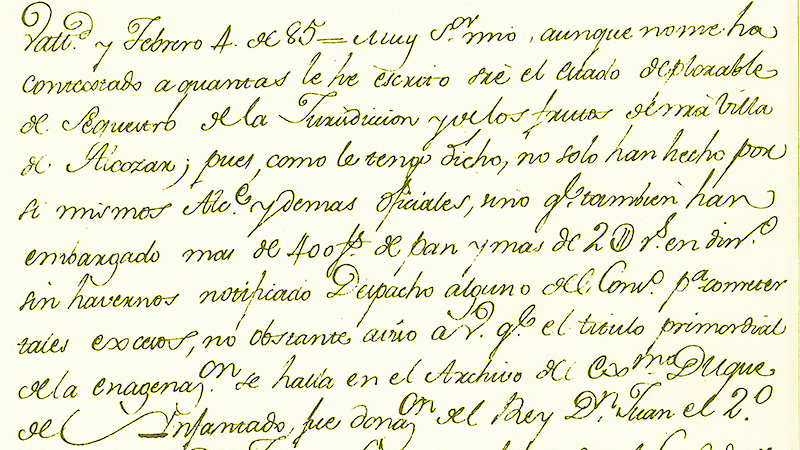 Vall.d y Febrero 4. de 85 = Muy S.or mio, aunque no me ha
contestado a quantas le he escrito sre el estado deplorable
de Sequestro de la Jurisdicion y de los frutos de nra Villa
de Alcozar; pues, como le tengo dicho, no solo han hecho por
si mismos Alc.e y demas oficiales, sino q.e tambien han
embargado mas de 400 f.s de pan y mas de 2 D r.s en din.o
sin havernos notificado Despacho alguno del Cons.o p.a cometer
tales excesos, no obstante aviso à V. q.e el titulo primordial
de la enagenaz.on se halla en el Archivo del Ex.mo Duque
del Infantado, fue donaz.on del Rey D.n Juan el 2.o